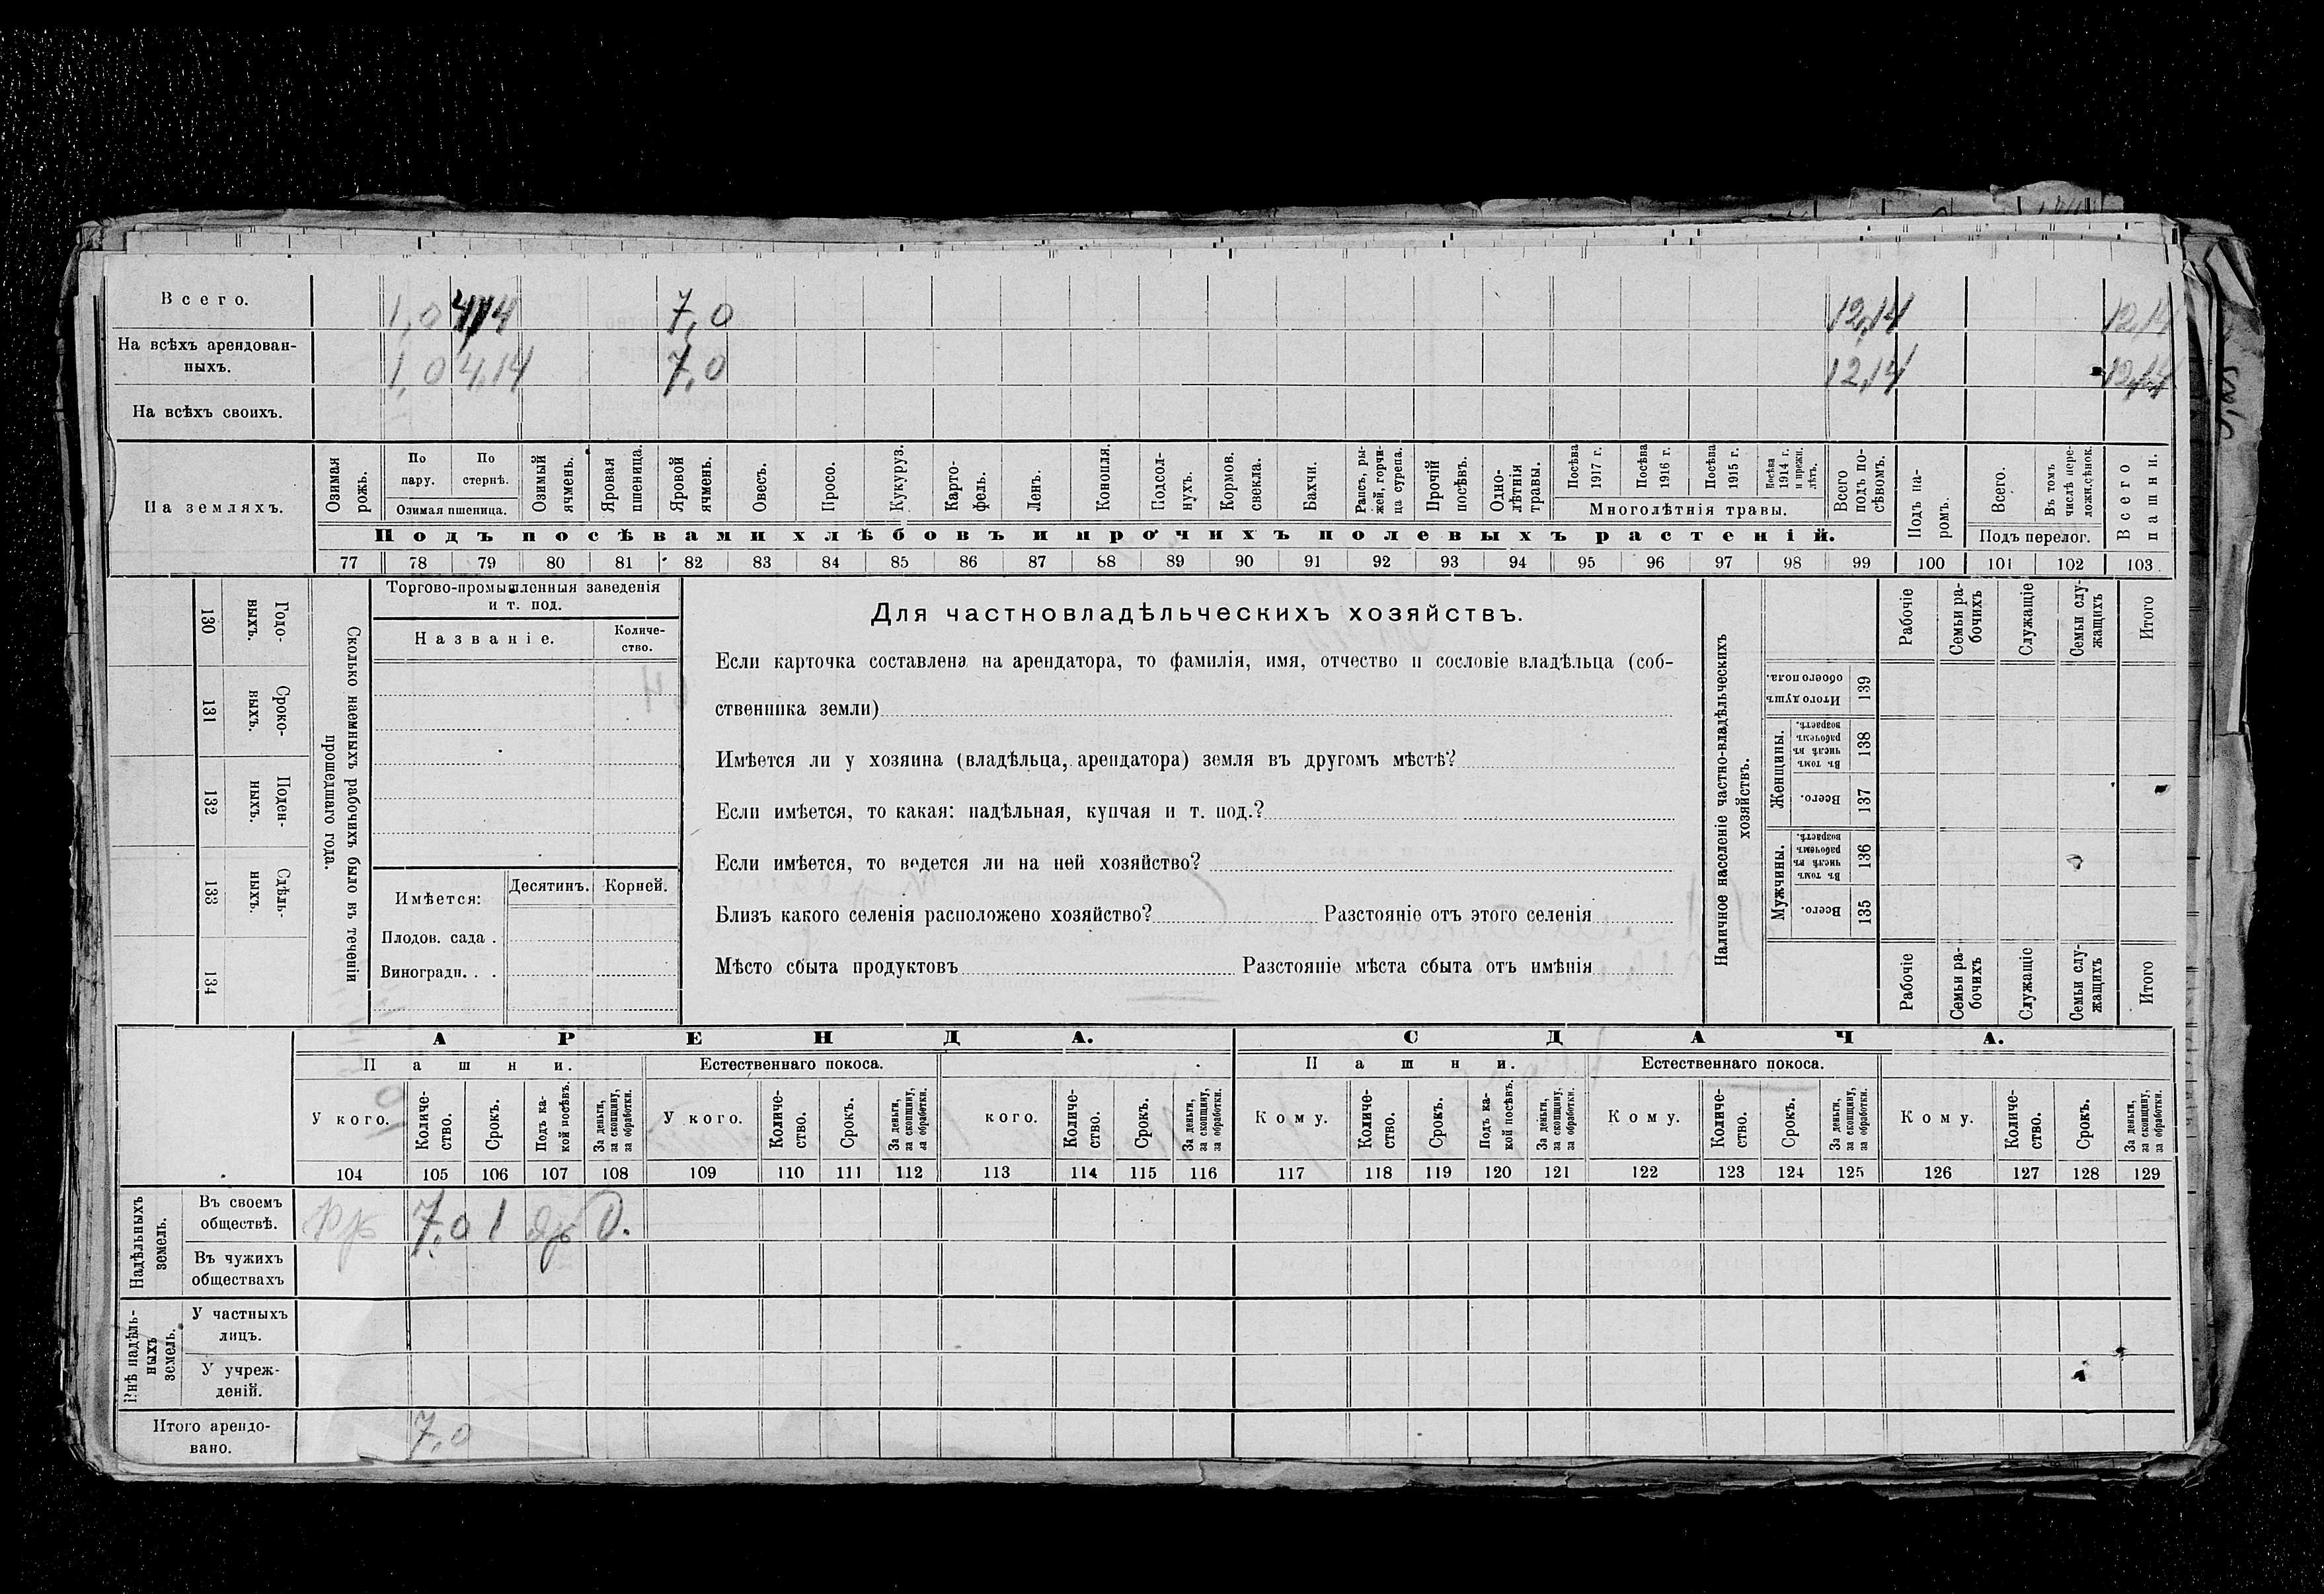 Всего. 1,0 4,14 7,0 12,14 12,14
На всѣхъ арендован-
ныхъ. 1,0 4,14 7,0 12,14 12,14
На всѣхъ своихъ.
На земляхъ.
Озимая рожь.
По пару.
По стернѣ.
Озимая пшеница.
Озимый ячмень.
Яровая пшеница.
Яровой ячмень.
Овесъ.
Просо.
Кукуруз.
Карто-
фель.
Ленъ.
Конопля.
Подсол-
нухъ.
Кормов. свекла.
Бахчи.
Рапсъ, ры-
жей, горчи-
ца сурепа.
Прочій посѣвъ.
Одно-
лѣтнія травы.
Посѣва 1917 г.
Посѣва 1916 г.
Посѣва 1915 г.
Посѣва 1914 г. и прежн. лѣтъ.
Многолѣтнія травы.
Всего подъ по-
сѣвомъ.
Подъ па-
ромъ.
Всего.
Въ томъ числѣ пере-
ложн. сѣнок.
Подъ перелог.
Всего пашни.
Подъ посѣвами хлѣбовъ и прочихъ полевыхъ растеній.
77 78 79 80 81 82 83 84 85 86 87 88 89 90 91 92 93 94 95 96 97 98 99 100 101 102 103
Сколько наемныхъ рабочихъ было въ теченіи
прошедшаго года.
Годо-
выхъ.
130
Сроко-
выхъ.
131
Поден-
ныхъ.
132
Сдѣль-
ныхъ.
133
134
Торгово-промышленныя заведенія
и т. под.
Названіе.
Количе-
ство.
Имѣется:
Десятинъ.
Корней.
Плодов. сада .
Виноградн. . .
Для частновладѣльческихъ хозяйствъ.
Если карточка составлена на арендатора, то фамилія, имя, отчество и сословіе владѣльца (соб-
ственника земли)
Имѣется ли у хозяина (владѣльца, арендатора) земля въ другомъ мѣстѣ?
Если имѣется, то какая: надѣльная, купчая и т. под.?
Если имѣется, то ведется ли на ней хозяйство?
Близъ какого селенія расположено хозяйство? Разстояніе отъ этого селенія
Мѣсто сбыта продуктовъ Разстояніе мѣста сбыта отъ имѣнія
Наличное населеніе частно-владѣльческихъ
хозяйствъ.
Рабочіе
Семьи ра-
бочихъ
Служащіе
Семьи слу-
жащихъ
Итого
Итого душъ обоего пола.
139
Женщины.
Въ томъ числѣ въ рабочемъ возрастѣ.
138
Всего.
137
Мужчины.
Въ томъ числѣ въ рабочемъ возрастѣ.
136
Всего.
135
Рабочіе
Семьи ра-
бочихъ
Служащіе
Семьи слу-
жащихъ
Итого
АРЕНДА.
СДАЧА.
Пашни.
Естественнаго покоса.
Пашни.
Естественнаго покоса.
У кого.
Количе-
ство.
Срокъ.
Подъ ка-
кой посѣвъ.
За деньги,
за скопщину,
за обработки.
У кого.
Количе-
ство.
Срокъ.
За деньги,
за скопщину,
за обработки.
кого.
Количе-
ство.
Срокъ.
За деньги,
за скопщину,
за обработки.
Кому.
Количе-
ство.
Срокъ.
Подъ ка-
кой посѣвъ.
За деньги,
за скопщину,
за обработки.
Кому.
Количе-
ство.
Срокъ.
За деньги,
за скопщину,
за обработки.
Кому.
Количе-
ство.
Срокъ.
За деньги,
за скопщину,
за обработки.
104 105 106 107 108 109 110 111 112 113 114 115 116 117 118 119 120 121 122 123 124 125 126 127 128 129
Надѣльныхъ
земель.
Въ своемъ
обществѣ. 7,0 1 Д.
Въ чужихъ
обществахъ
Внѣ надѣль-
ныхъ
земель.
У частныхъ
лицъ.
У учреж-
деній.
Итого арендо-
вано. 7,0